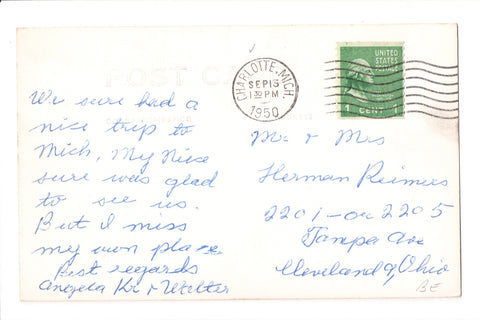 POST CA
CHARLOTTE, MICH.
SEP 13
1 30 PM
1950
UNITED
STATES
POSTAGE
1 CENT 1
We sure had a
nice trip to
Mich, My Niece
sure was glad
to see us.
But I miss
my own place
Best regards
Angela Kr & Walter
Mr & Mrs
Herman Reimers
2201-or 2205
Tampa Ave
Cleveland 9, Ohio
BE